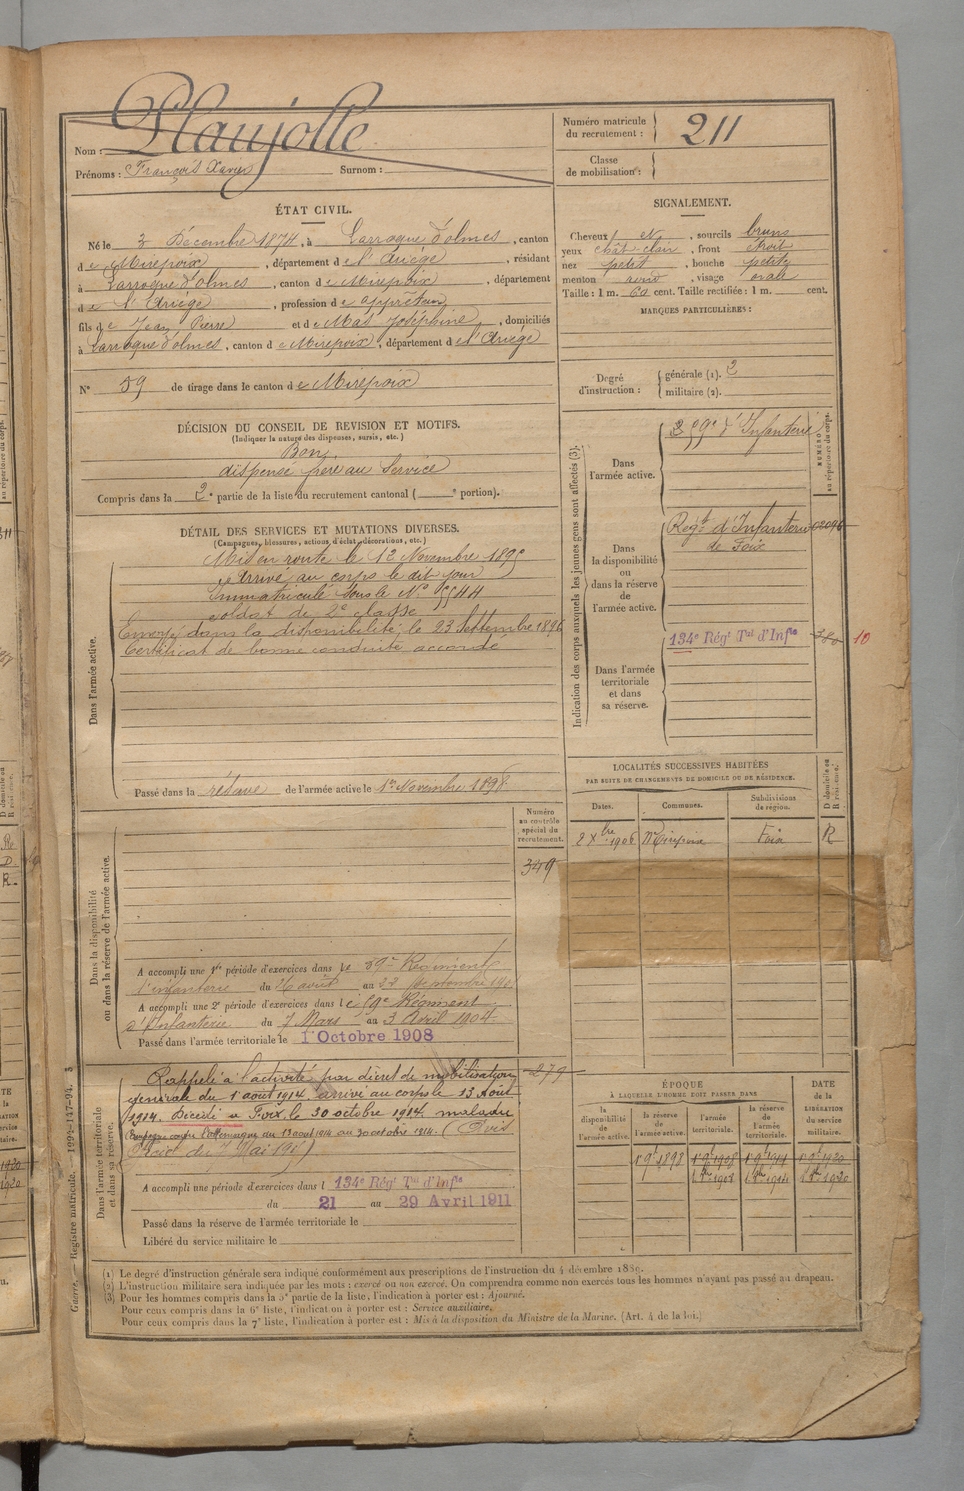 Nom : Plaujolle
Prénoms : François Xavier Surnom :
Numéro matricule du recrutement : 211
Classe de mobilisation :
ÉTAT CIVIL.
Né le 3 Décembre 1874, à Larroque d'olmes, canton
de Mirepoix, département de l'Ariège, résidant
à Larroque d'olmes, canton de Mirepoix, département
de l'Ariège, profession de apprêteur
fils de Jean Pierre et de Mas Joséphine, domiciliés
à Larroque d'olmes, canton de Mirepoix, département de l'Ariège
N° 59 de tirage dans le canton de Mirepoix
SIGNALEMENT.
Cheveux et, sourcils bruns
yeux chât-clair, front étroit
nez petit, bouche petite
menton rond, visage ovale
Taille : 1 m. 60 cent. Taille rectifiée : 1 m. cent.
MARQUES PARTICULIÈRES :
Degré d'instruction : générale (1). 2
militaire (2).
DÉCISION DU CONSEIL DE REVISION ET MOTIFS.
(Indiquer la nature des dispenses, sursis, etc.)
Bon
dispensé frère au Service
Compris dans la 2e partie de la liste du recrutement cantonal ( e portion).
DÉTAIL DES SERVICES ET MUTATIONS DIVERSES.
(Campagnes, blessures, actions d'éclat, décorations, etc.)
Dans l'armée active.
Mis en route le 12 Novembre 1895
Arrivé au corps le dit jour
Immatriculé sous le N° 5544
soldat de 2e classe
Envoyé dans la disponibilité le 23 Septembre 1896
Certificat de bonne conduite accordé
Passé dans la réserve de l'armée active le 1er Novembre 1898
Indication des corps auxquels les jeunes gens sont affectés (3).
NUMÉRO au répertoire du corps.
Dans l'armée active.
59e d'Infanterie
Dans la disponibilité ou dans la réserve de l'armée active.
Regt d'Infanterie
de Foix
Dans l'armée territoriale et dans sa réserve.
134e Régt Tal d'Infie 10
LOCALITÉS SUCCESSIVES HABITÉES
PAR SUITE DE CHANGEMENTS DE DOMICILE OU DE RÉSIDENCE.
Dates. Communes. Subdivisions de région. D domicile ou R résidence.
2 Xbre 1906 Mirepoix Foix R
Numéro au contrôle spécial du recrutement.
349
Dans la disponibilité ou dans la réserve de l'armée active.
A accompli une 1re période d'exercices dans le 59e Régiment
d'infanterie du 26 août au 22 septembre
A accompli une 2e période d'exercices dans le 59e Régiment
d'Infanterie du 7 Mars au 3 Avril 1904.
Passé dans l'armée territoriale le 1 Octobre 1908
Dans l'armée territoriale et dans sa réserve.
279
Rappelé à l'activité par décret de mobilisation
générale du 1 août 1914, arrivé au corps le 13 Août
1914. Décédé à Foix, le 30 octobre 1914. maladie
Campagne contre l'allemagne du 13 août 1914 au 30 octobre 1914. (Avis
A accompli une période d'exercices dans l 134e Régt Tal d'Infie
du 21 au 29 Avril 1911
Passé dans la réserve de l'armée territoriale le
Libéré du service militaire le
ÉPOQUE
À LAQUELLE L'HOMME DOIT PASSER DANS
la disponibilité de l'armée active. la réserve de l'armée active. l'armée territoriale. la réserve de l'armée territoriale.
DATE de la LIBÉRATION du service militaire.
1 9bre 1898 1 9bre 1908 1 9bre 1914 1 9bre 1920
(1) Le degré d'instruction générale sera indiqué conformément aux prescriptions de l'instruction du 4 décembre 1889.
(2) L'instruction militaire sera indiquée par les mots : exercé ou non exercé. On comprendra comme non exercés tous les hommes n'ayant pas passé au drapeau.
(3) Pour les hommes compris dans la 5e partie de la liste, l'indication à porter est : Ajourné.
Pour ceux compris dans la 6e liste, l'indication à porter est : Service auxiliaire.
Pour ceux compris dans la 7e liste, l'indication à porter est : Mis à la disposition du Ministre de la Marine. (Art. 4 de la loi.)
Guerre. — Registre matricule. — 1224-147-94. 3